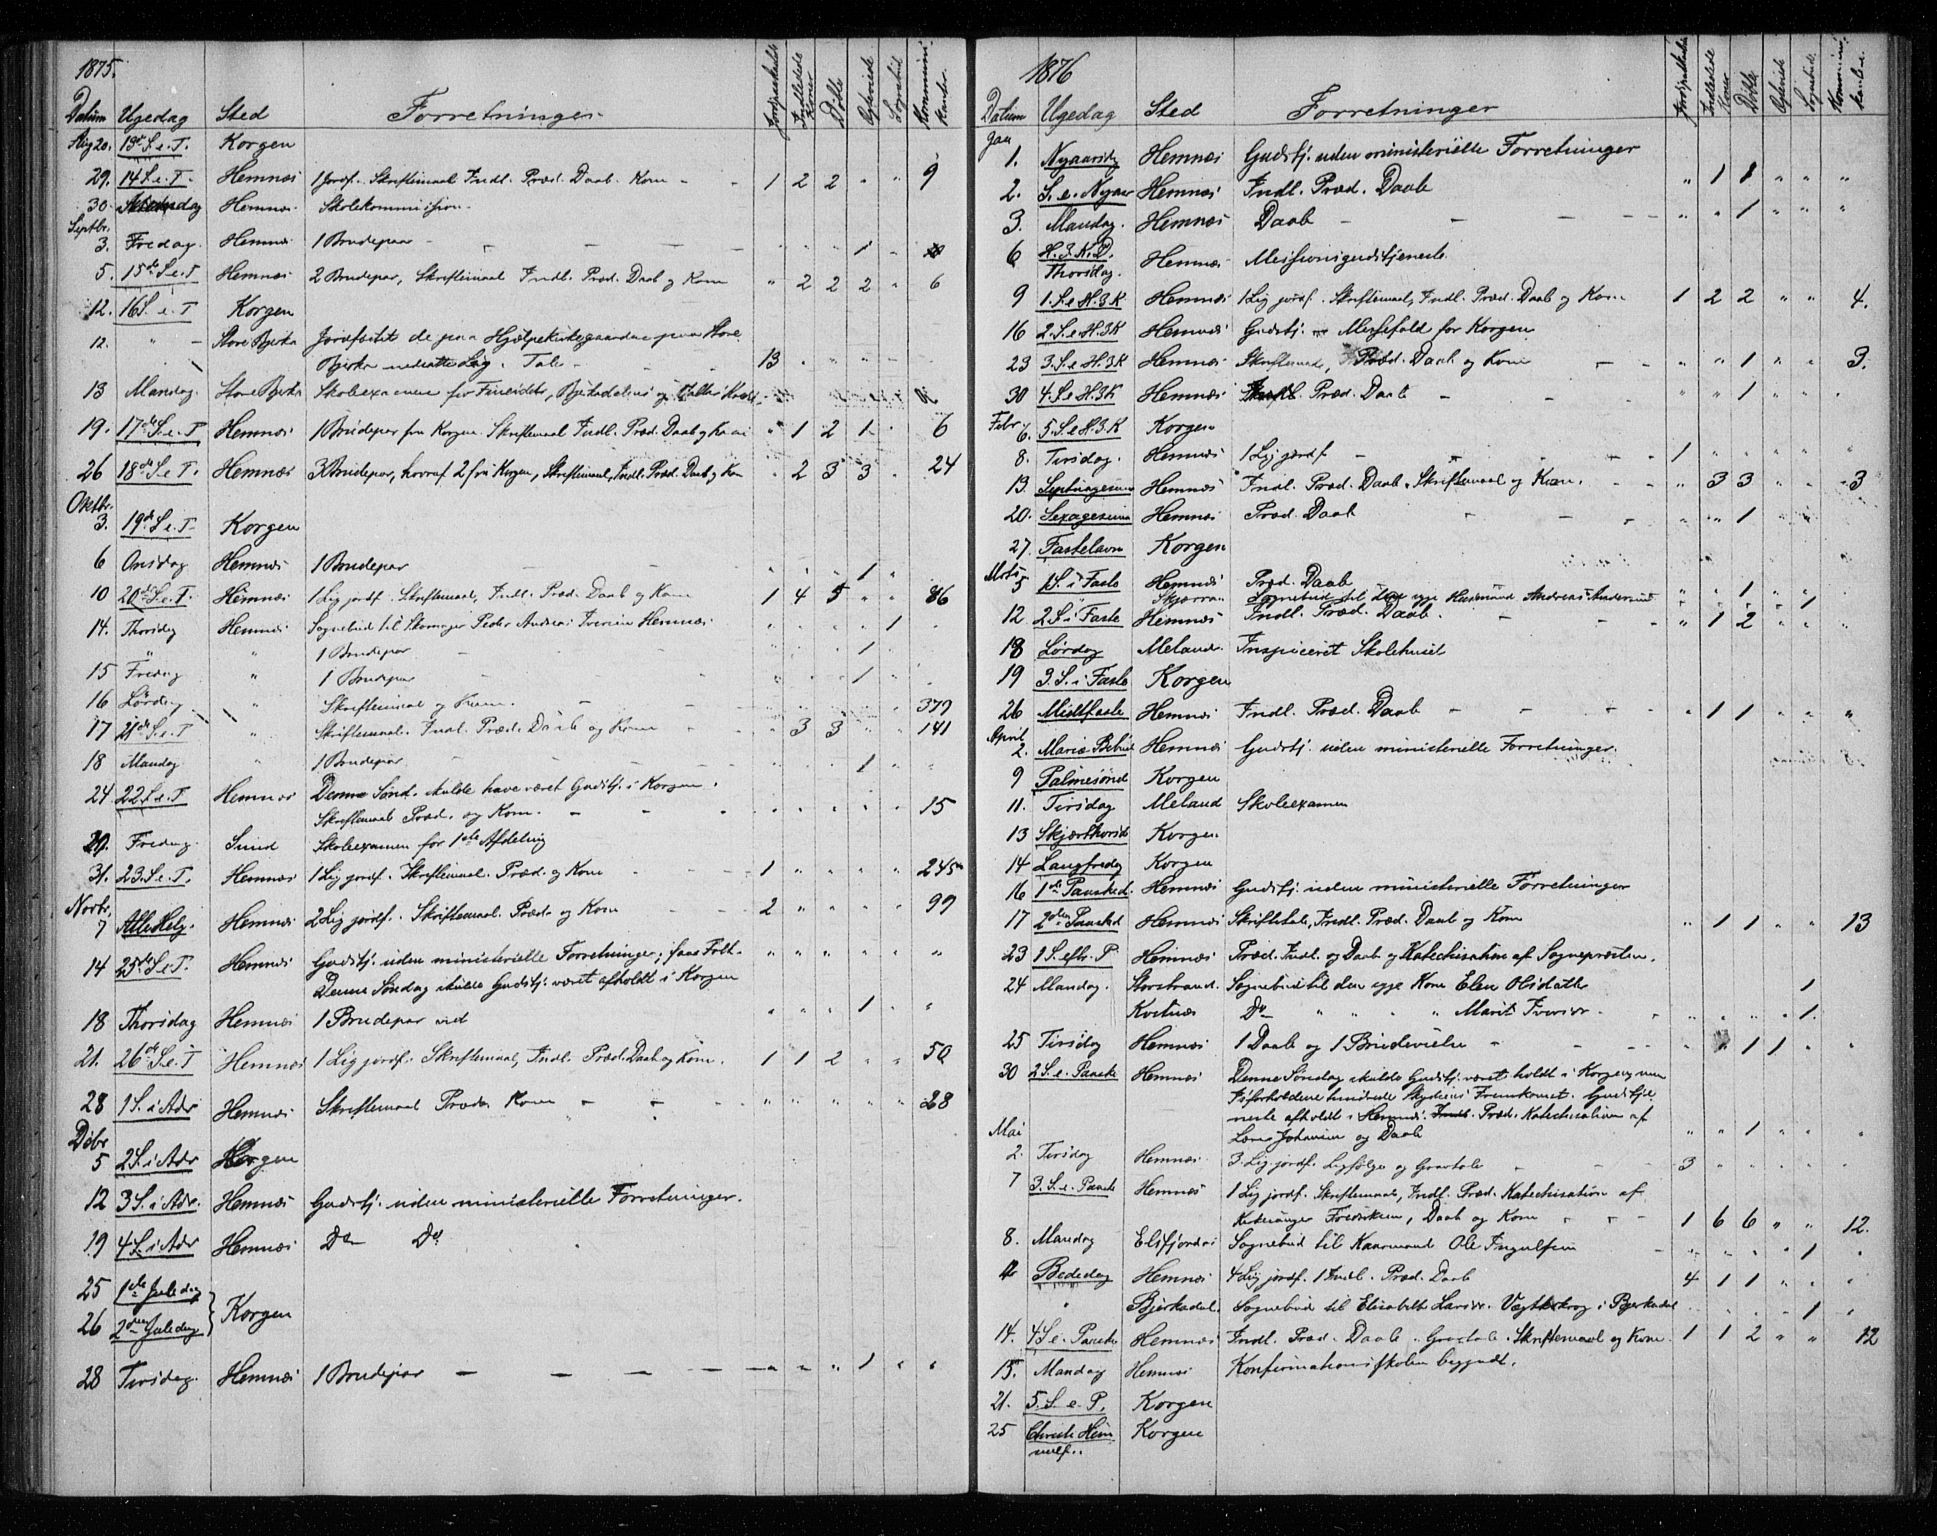 1875.
Datum Ugedag Sted Forretninger Jordpaakastede Indledede Koner Døbte Ægteviede Sognebud Kommunikanter
Aug 20. 13de S. e. T. Korgen
29. 14 S. e. T. Hemnæs 1 Jordf. Skriftemaal Indl. Præd. Daab. Kom - - 1 2 2 " " 9
30. Mandag Hemnæs Skolekommission.
Septbr.
3. Fredag. Hemnæs 1 Brudepar - - - " " " 1 "
5. 15de S. e. T Hemnæs 2 Brudepar, Skriftemaal Indl. Præd. Daab og Kom " 2 2 2 " 6
12. 16 S. e. T Korgen
12. " - Store Bjerka Jordfæstet de paa Hjælpekirkegaarden paa Store
Bjerka nedsatte Lig. Tale - - - 13 " " " " "
13 Mandag. Store Bjerka Skoleexamen for Fineidets, Bjerkadalens og
19. 17de S. e. T Hemnæs 1 Brudepar fra Korgen. Skriftemaal Indl. Præd. Daab og Kom " 1 2 1 " 6
26 18de S. e. T. Hemnæs 3 Brudepar, hvoraf 2 fra Korgen, Skriftemaal, Indl. Præd. Daab og Kom " 2 3 3 " 24
Oktbr.
3. 19de S. e. T Korgen
6 Onsdag Hemnæs 1 Brudepar - - " " " 1 "
10 20de S. e. T. Hemnæs 1 Lig jordf. Skriftemaal, Indl. Præd. Daab og Kom 1 4 5 " " 86
14. Thorsdag Hemnæs Sognebud til Skomager Peder Andreas Iversen Hemnæs " " " " 1 "
" " 1 Brudepar - - - " " " 1 "
15 Fredag " 1 Brudepar - - " " " 1 "
16 Lørdag " Skriftemaal og Kom. - - - " " " " " 379
17 21de S. e. T " Skriftemaal. Indl. Præd. Daab og Kom - - " 3 3 " " 141
18 Mandag " 1 Brudepar - - - " " " 1 " "
24 22 S. e. T Hemnæs Denne Sønd. skulde have været Gudstj. i Korgen.
Skriftemaal Præd. og Kom. - - " " " " " 15
29. Fredag. Sund Skoleexamen for 1ste Afdeling
31. 23. S. e. T. Hemnæs 1 Lig jordf. Skriftemaal. Præd. og Kom - - - 1 " " " " 245
Novbr.
7 Allehelg. Hemnæs 2 Lig jordf. Skriftemaal. Præd. og Kom - - 2 " " " " 99
14 25de S. e. T. Hemnæs Gudstj. uden ministerielle Forretninger; faa Folk. " " " " " "
Denne Søndag skulde Gudstj. været afholdt i Korgen
18 Thorsdag Hemnæs 1 Brudepar " " " 1 " "
21. 26de S. e. T Hemnæs 1 Lig jordf. Skriftemaal, Indl. Præd. Daab og Kom. 1 1 2 " " 50
28 1 S. i Adv Hemnæs Skriftemaal Præd. Kom - - - " " " " " 28
Dcbr
5 2 S. i Adv Korgen
12 3 S. i Adv. Hemnæs Gudstj. uden ministerielle Forretninger.
19 4 S. i Adv Hemnæs Do Do
25 1ste Juledag
26 2den Juledag } Korgen
28 Tirsdag. Hemnæs 1 Brudepar - - - - " " " 1 " "
1876
Datum Ugedag Sted Forretninger Jordpaakastede Indledede Koner Døbte Ægteviede Sognebud Kommunikanter
Jan
1. Nyaarsdg Hemnæs Gudstj. uden ministerielle Forretninger
2. S. e. Nyaar Hemnæs Indl. Præd. Daab " 1 1 " " "
3. Mandag. Hemnæs Daab - - - " " 1 " " "
6 H. 3 K. D. Thorsdag. Hemnæs Missionsgudstjeneste
9 1. S. e H. 3 K Hemnæs 1 Lig jordf. Skriftemaal, Indl. Præd. Daab og Kom 1 2 2 " " 4.
16 2. S. e H. 3 K Hemnæs Gudstj. Messefald for Korgen
23 3. S. e H. 3 K Hemnæs Skriftemaal, Præd. Daab og Kom - - " " 1 " " 3.
30 4. S. e H. 3 K Hemnæs Præd. Daab - - - " " 1 " "
Febr.
6. 5. S. e H. 3. K Korgen
8. Tirsdag. Hemnæs 1 Lig jordf - - - 1 " " " " "
13. Septuagesima Hemnæs Indl. Præd. Daab. Skriftemaal og Kom. - - " 3 3 " " 3
20. Sexagesima Hemnæs Præd. Daab - - - " " 1 " "
27. Fastelavn Korgen
Marts
5 1 S. i Faste Hemnæs Præd. Daab " " 1 " "
Sognebud til den syge Husmand Andreas Anderssen " " " " 1
12 2 S. i Faste Hemnæs Indl. Præd. Daab. - - - " 1 2 " "
18 Lørdag Meland. Inspiceret Skolehuset
19 3. S. i Faste Korgen
26 Midtfaste Hemnæs Indl. Præd. Daab - - - " 1 1 " " "
April
2. Mariæ Bebud Hemnæs Gudstj. uden ministerielle Forretninger.
9 Palmesønd Korgen
11. Tirsdag Meland Skoleexamen
13 Skjærthorsd Korgen
14 Langfredag Korgen
16 1ste Paasked. Hemnæs Gudstj. uden ministerielle Forretninger
17 2den Paasked Hemnæs Skriftetale, Indl. Præd. Daab og Kom " 1 1 " " 13
23 1 S. eft. P Hemnæs Præd. Indl. og Daab og Katechisation af Sognepræsten.
24 Mandag. Storstrand. Sognebud til den syge Kone Elen Olsdatter 1
Do " " " " Marit Iversdr. - " " " " 1.
25 Tirsdag Hemnæs 1 Daab og 1 Brudevielse - - " " 1 1 " "
30 2 S. e. Paaske Hemnæs Denne Søndag skulde Gudstj. været holdt i Korgen, men
Isforholdene hindrede Skydsens Fremkomst. Gudstje
neste afholdt i Hemnæs. Indl. Præd. Katechisation af
Lærer Johansen og Daab " " 1 " " "
Mai
2. Tirsdag Hemnæs 3 Lig jordf. Ligfølge og Gravtale - - - 3 " " " " "
7 3. S. e. Paaske Hemnæs 1 Lig jordf. Skriftemaal, Indl. Præd. Katechisation af
Kirkesanger Fredriksen, Daab og Kom - - - 1 6 6 " " 12.
8. Mandag Elsfjorden Sognebud til Kaarmand Ole Ingulfsen - " " " " 1 "
Bededag Hemnæs 4 Lig jordf. 1 Indl. Præd. Daab 4 1 1 " " "
" Bjerkadal. Sognebud til Elisabeth Larsdr. i Bjerkadal " " " " 1 "
14. 4 S e. Paaske Hemnæs Indl. Præd. Daab. Gravtale. Skriftemaal og Kom. 1 1 2 " " 12
15. Mandag Hemnæs Konfirmationsskolen begyndt.
21. 5. S. e. P. Korgen
25 Christi Himmelf.. Korgen